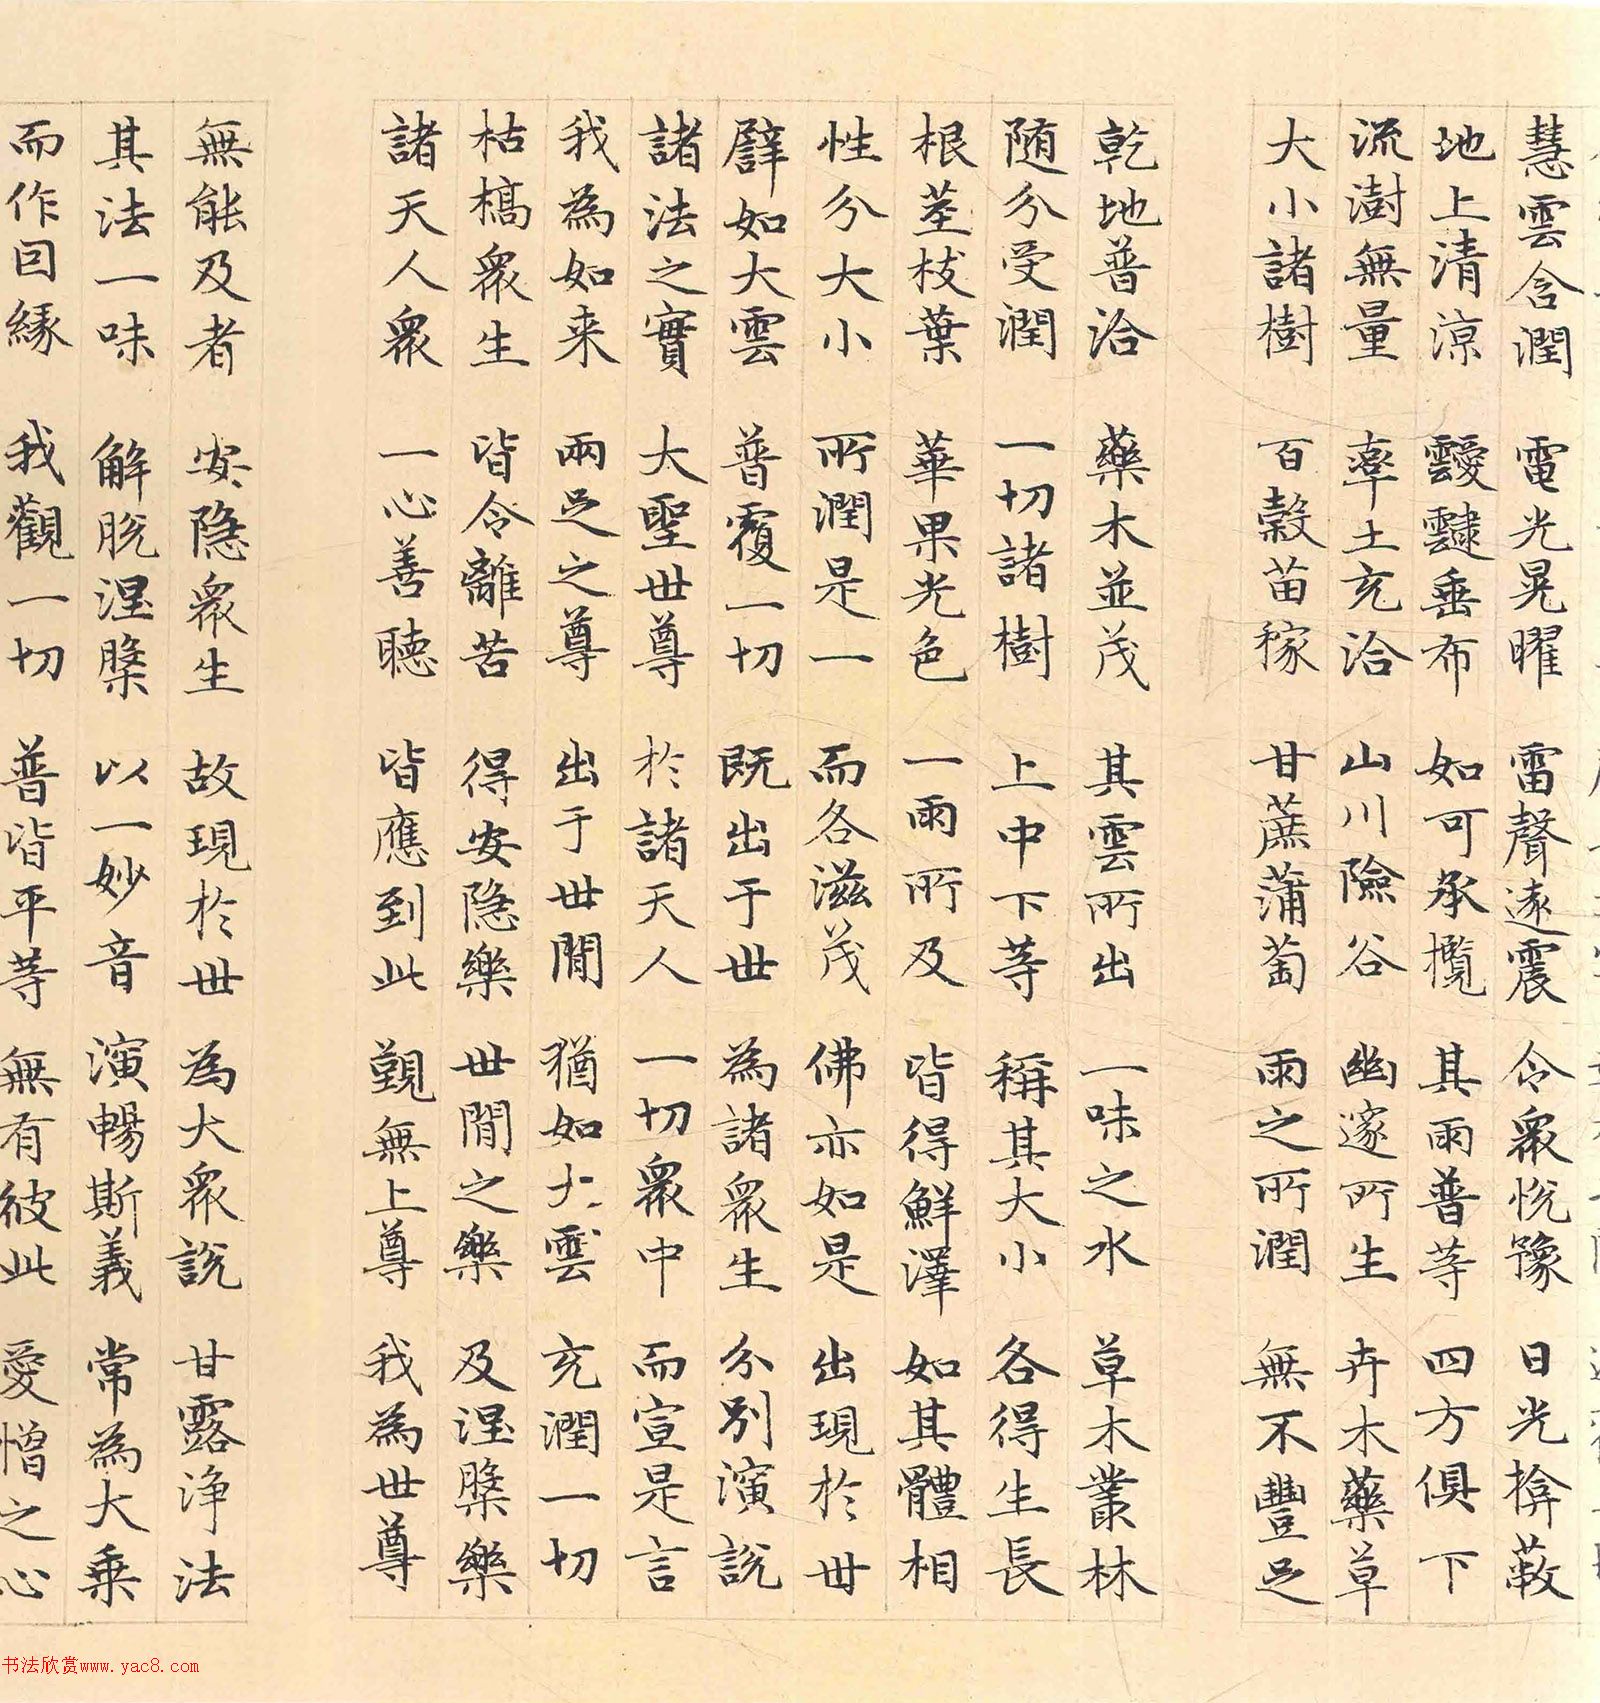 慧雲含潤 電光晃曜 雷聲遠震 令衆悅豫 日光揜蔽
地上清涼 靉靆垂布 如可承攬 其雨普等 四方俱下
流澍無量 率土充洽 山川險谷 幽邃所生 卉木藥草
大小諸樹 百穀苗稼 甘蔗蒲萄 雨之所潤 無不豐足
乾地普洽 藥木並茂 其雲所出 一味之水 草木叢林
随分受潤 一切諸樹 上中下等 稱其大小 各得生長
根莖枝葉 華果光色 一雨所及 皆得鮮澤 如其體相
性分大小 所潤是一 而各滋茂 佛亦如是 出現於世
譬如大雲 普覆一切 既出于世 為諸衆生 分別演說
諸法之實 大聖世尊 於諸天人 一切衆中 而宣是言
我為如来 兩足之尊 出于世間 猶如大雲 充潤一切
枯槁衆生 皆令離苦 得安隐樂 世間之樂 及涅槃樂
諸天人衆 一心善聽 皆應到此 覲無上尊 我為世尊
無能及者 安隐衆生 故現於世 為大衆說 甘露浄法
其法一味 解脫涅槃 以一妙音 演暢斯義 常為大乗
而作因緣 我觀一切 普皆平等 無有彼此 愛憎之心
书法欣赏www.yac8.com